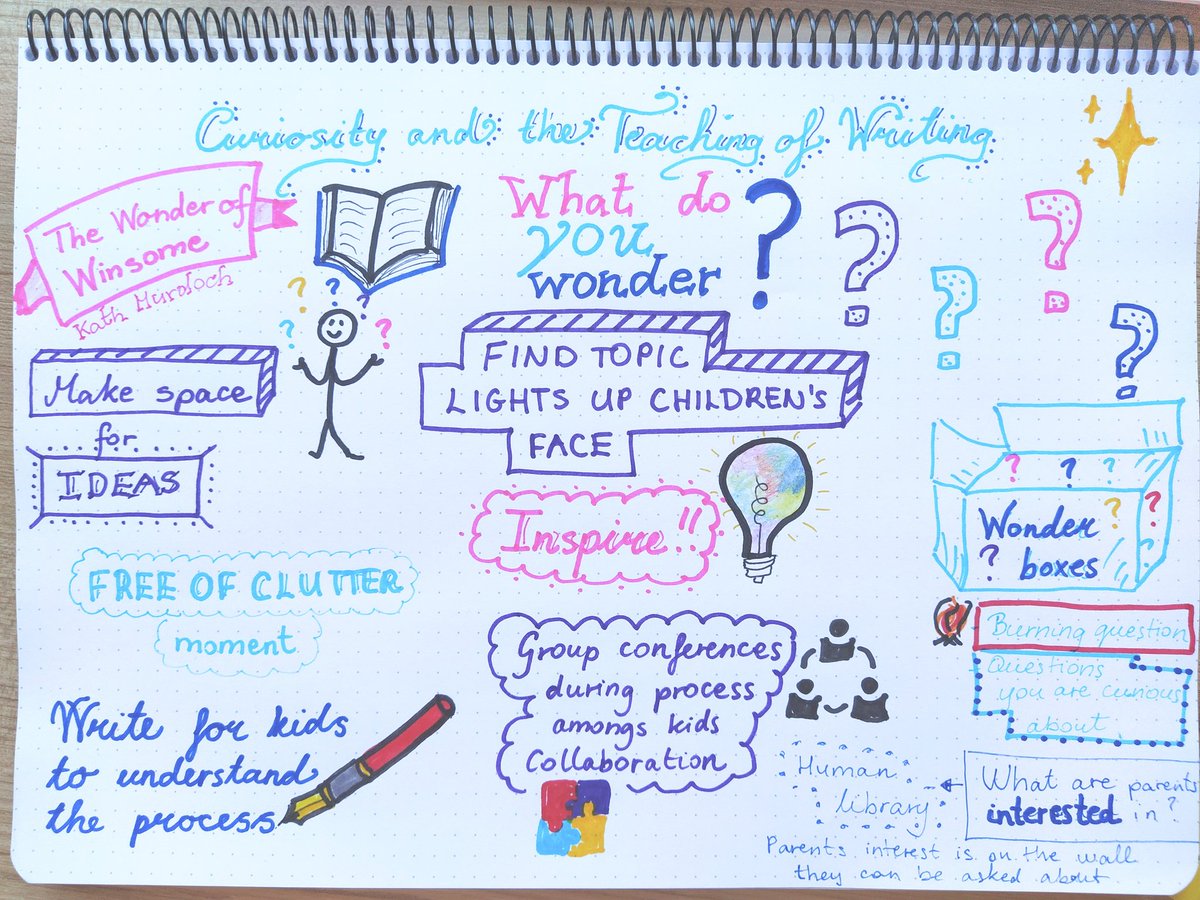 Curiosity and the Teaching of Writing
The Wonder of
Winsome
Kath Murdoch
What do
you
wonder
?
Make space
for
IDEAS
FIND TOPIC
LIGHTS UP CHILDREN'S
FACE
Inspire!!
Wonder ?
? boxes
FREE OF CLUTTER
moment
Burning question
Questions
you are curious
about
Group conferences
during process
amongs kids
Collaboration
Write for kids
to understand
the process
Human
library
What are parents
interested in?
Parents interest is on the wall
they can be asked about